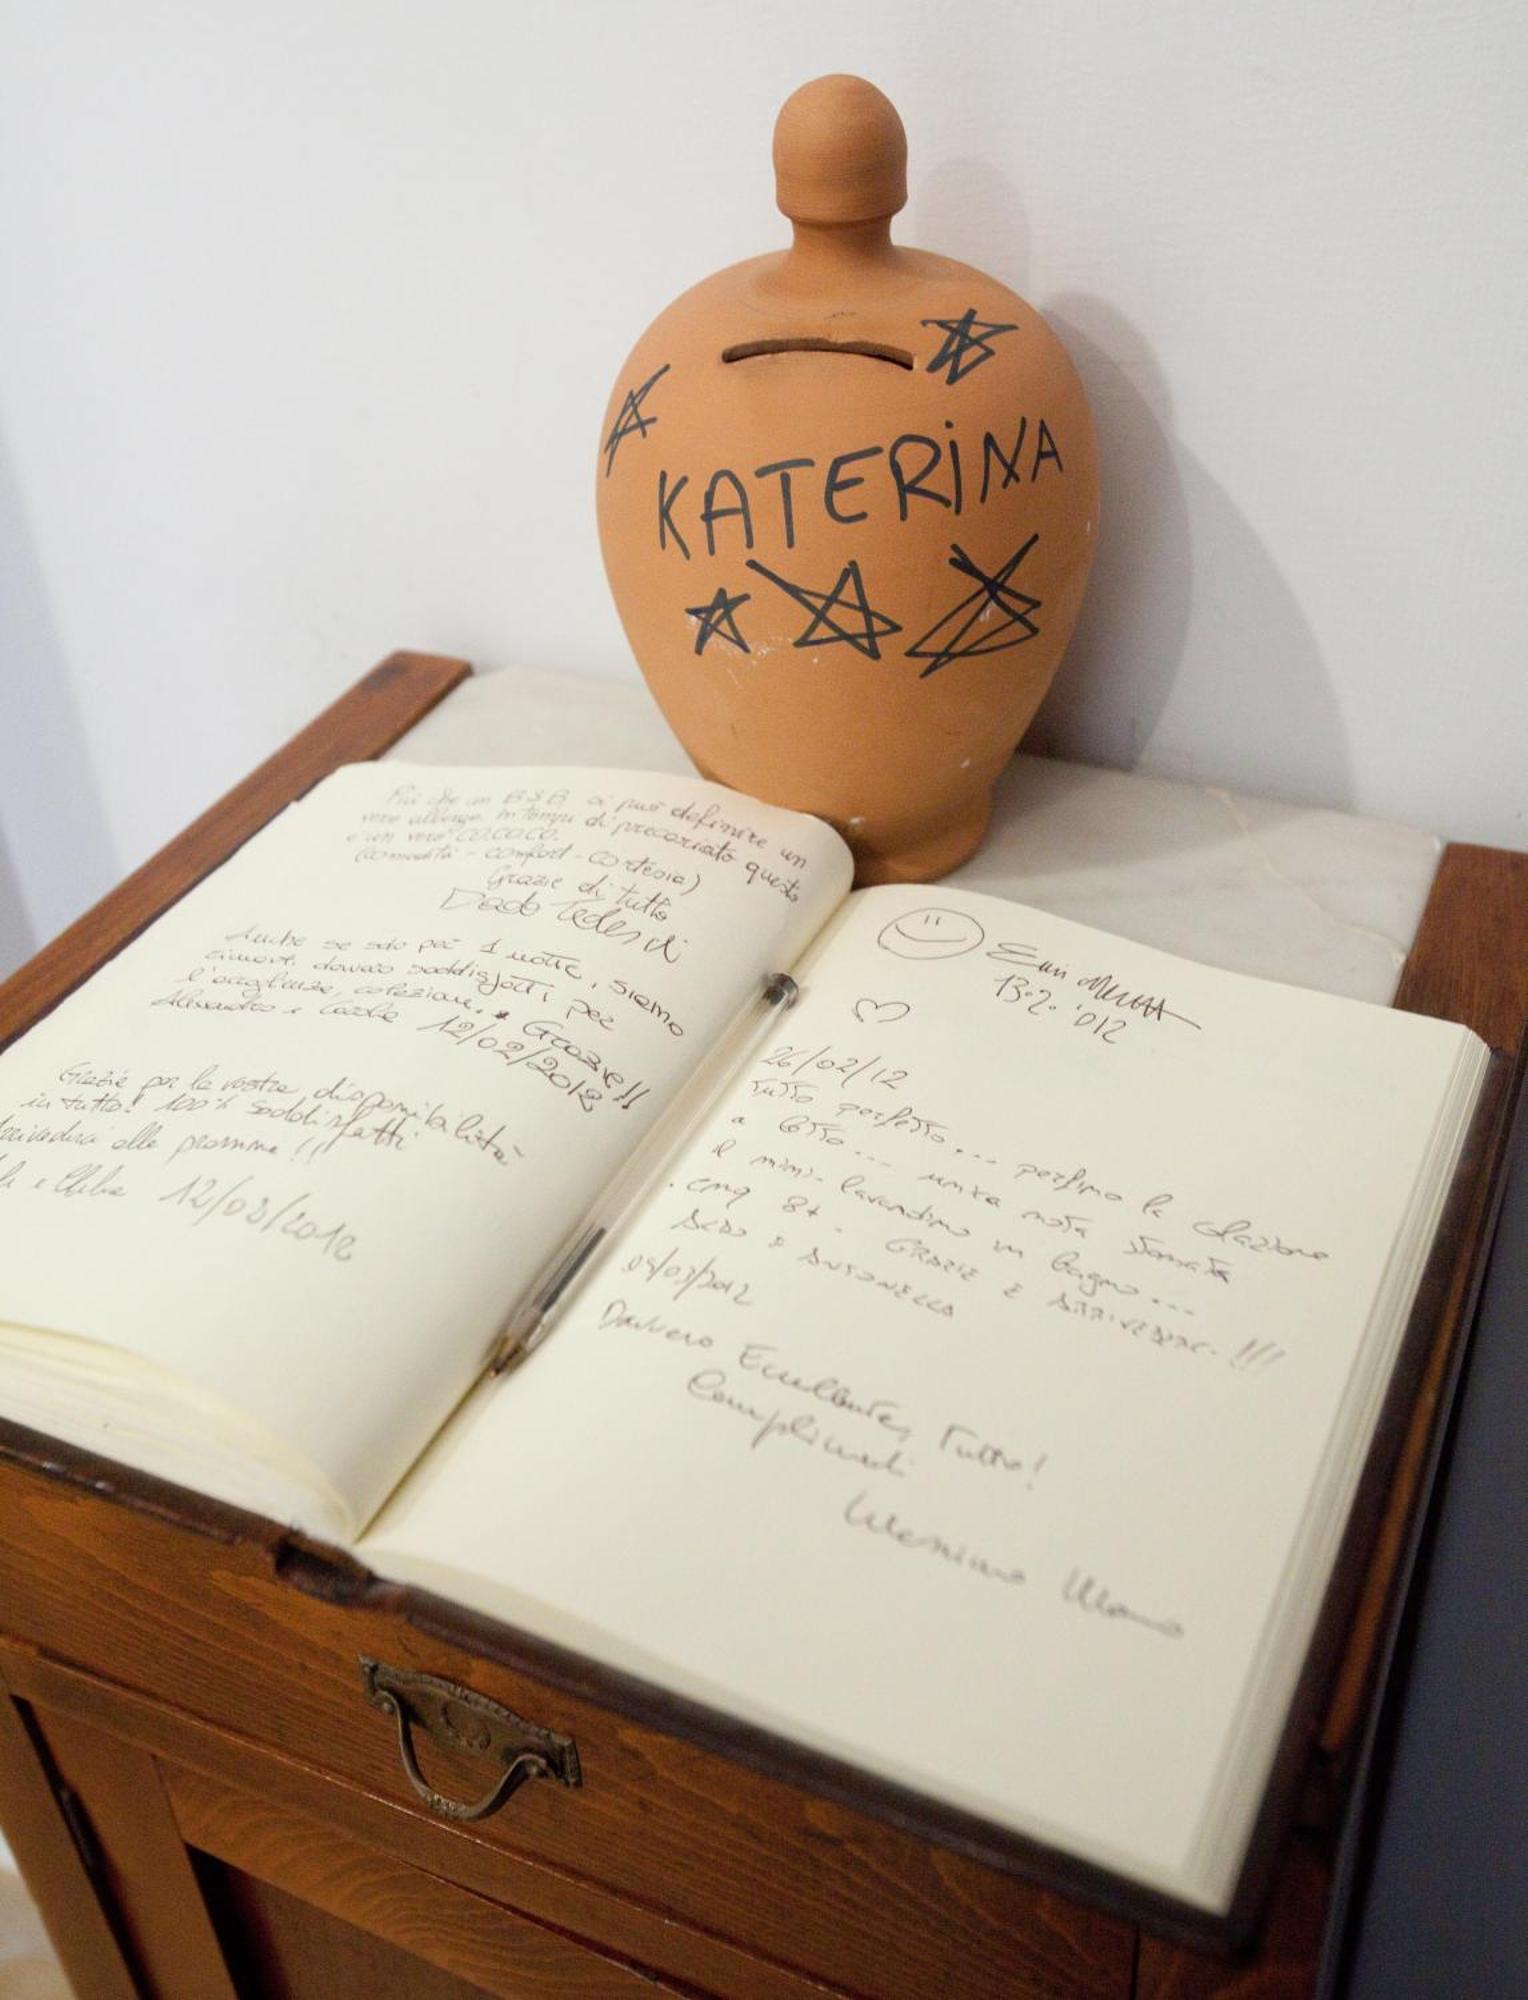 KATERiNA
Più che un B&B si può definire un
vero albergo. In tempi di precariato questo
è un vero CO.CO.CO.
(comodità - comfort - cortesia)
Grazie di tutto
Dado Tedeschi
Anche se solo per 1 notte, siamo
rimasti davvero soddisfatti per
l'accoglienza, colazione... Grazie!!
12/02/2012
Grazie per la vostra disponibilità
in tutto! 100% soddisfatti
alla prossima!!!
12/03/2012
13.2.'012
26/02/12
Tutto perfetto... perfino la colazione
a letto... unica nota stonata
il mini-lavandino in bagno...
cmq 8+. GRAZIE E ARRIVEDERCI!!!
ALDO E ANTONELLA
05/03/2012
Davvero Eccellente, Tutto!
Complimenti